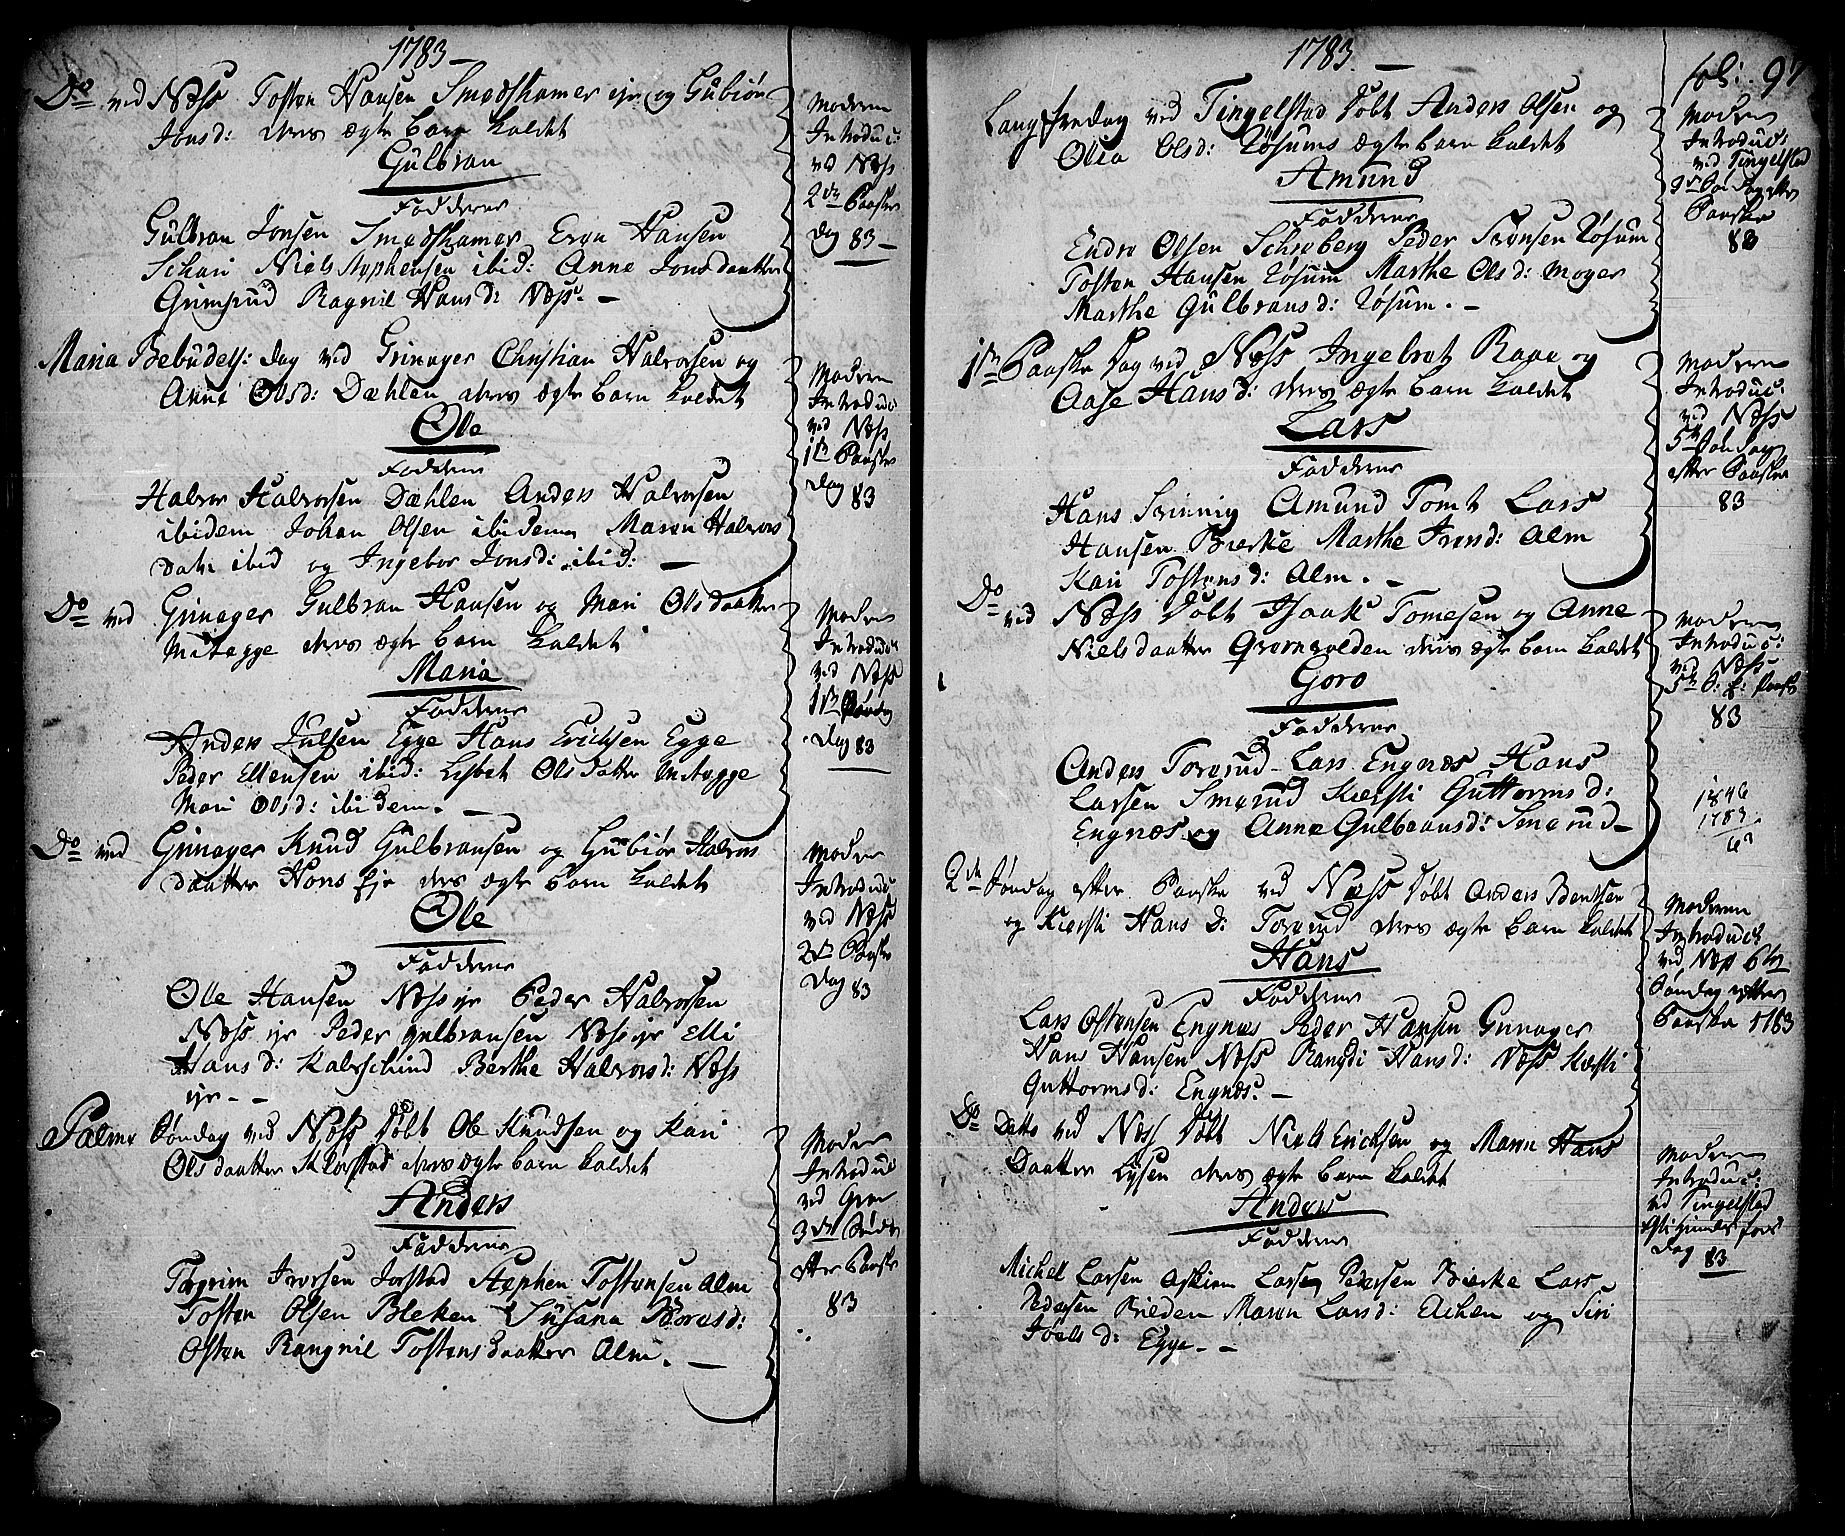 1783
Do ved Næss Tosten Hansen Smedshamer eje og Gubiør
Jonsd: deres ægte barn kaldet
Gulbran
Fadderne
Gulbran Jonsen Smedshamer Even Hansen
Schari Niels Stephensen ibid: Anne Jonsdaatter
Grimsrud Ragnil Hansd: Næss. –
Moderen
Introduc:
ved Næss
2den Paaske
dag 83 –
Maria Bebudels: dag ved Grinager Christian Halvorsen og
Anne Olsd: Dæhlen deres ægte barn kaldet
Ole
Fadderne
Halvor Halvorsen Dæhlen Anders Halvorsen
ibidem Johan Olsen ibidem Maren Halvors
Datr ibid og Ingebor Jonsd: ibid: –
Moderen
Introduc
ved Næss
1ste Paaske
dag 83
Do ved Grinager Gulbran Hansen og Mari Olsdaatter
Mitegge deres ægte barn kaldet
Maria
Fadderne
Anders Julsen Egge Hans Erichsen Egge
Peder Ellensen ibid: Lisbet Olsdatter Mitegge
Mari Olsd: ibidem. –
Moderen
Introduc
ved Næss
1ste
dag 83
Do ved Grinager Knud Gulbransen og Gubiør Halvors
daatter Hons Eje deres ægte barn kaldet
Ole
Fadderne
Ole Hansen Næss eje Peder Halvorsen
Næss eje Peder Gulbransen Næss eje Elli
Hansd: Kalvschind Berthe Halvorsd: Næss
eje - -
Moderen
Introduc
ved Næss
2den Paaske
Dag 83
Palme Søndag ved Næss døbt Ole Knudsen og Kari
Olsdaatter Klæstad deres ægte barn kaldet
Anders
Fadderne
Torgrim Iversen Jorstad Stephen Tostensen Alm
Tosten Olsen Bleken Susana Boresd:
Osten Rangnil Tostensdaatter Alm. –
Moderen
Introduc
ved Gran
3die Sønd:
efter Paaske
83
1783 –
fol: 97
Langfredag ved Tingelstad døbt Anders Olsen og
Olia Olsd: Røsums ægte barn kaldet
Amund
Fadderne
Endre Olsen Schreberg Peder Svensen Røsum
Tosten Hansen Røsum Marthe Olsd: Moger
Marthe Gulbransd: Røsum. –
Moderen
Introduc:
ved Tingelstad
2den Søndag efter
Paaske
83
1ste Paaske Dag ved Næss Ingebret Raae og
Aase Hansd: deres ægte barn kaldet
Lars
Fadderne
Hans Amund Tomt Lars
Hansen Bierke Marthe Iversd: Alm
Kari Tostensd: Alm. –
Moderen
Introduc:
ved Næss
5te Søndag
efter Paaske
83
Do ved Næss døbt Isaak Tomesen og Anne
Nielsdaatter Grønevolden deres ægte barn kaldet
Goro
Fadderne
Anders Torerud Lars Engnæs Hans
Larsen Smerud Kiersti Guttormsd:
Engnæs og Anne Gulbransd: Smerud –
Moderen
Introduc:
ved Næss
5te S: E: Paaske
83
1846
1783
63
2den Søndag efter Paaske ved Næss døbt Anders Bentsen
og Kiersti Hans D: Torerud deres ægte barn kaldet
Hans
Fadderne
Lars Ostensen Engnæs Peder Hansen Grinager
Hans Hansen Næss Rangdi Hansd: Næss Kiersti
Guttormsd: Engnæs. –
Moderen
Introduct
ved Næss 6te
Søndag efter
Paaske 1783
Do Detto ved Næss døbt Niels Erichsen og Maren Hans
Daatter Lysen deres ægte barn kaldet
Anders
Fadderne
Michel Larsen Askim Lars Pedersen Bierke Lars
Pedersen Maren Larsd: Achen og Siri
Joels d: Egge. – –
Moderen
Introduc:
ved Tingelstad
Christi Himmelfarts
dag 83